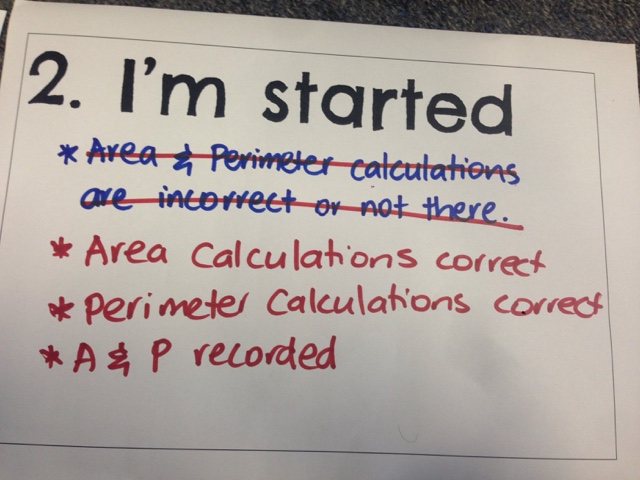 2. I'm started
* Area & Perimeter calculations
are incorrect or not there.
* Area Calculations correct
* Perimeter Calculations correct
* A & P recorded